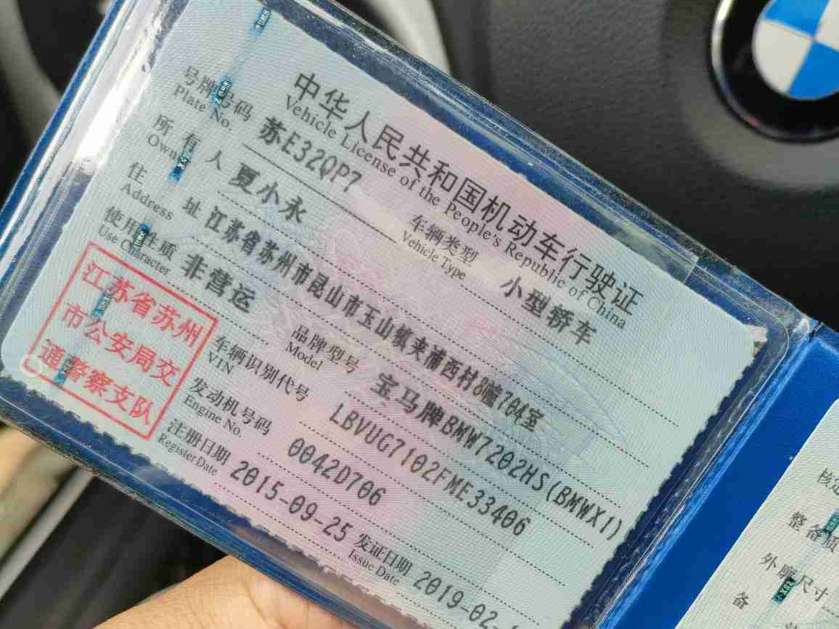 中华人民共和国机动车行驶证
Vehicle License of the People's Republic of China
号牌号码 苏E32QP7 车辆类型 小型轿车
Plate No. Vehicle Type
所有人 夏小永
Owner
住址 江苏省苏州市昆山市玉山镇夹浦西村8幢704室
Address
使用性质 非营运 品牌型号 宝马牌BMW7202HS(BMWX1)
Use Character Model
江苏省苏州
市公安局交
通警察支队
车辆识别代号 LBVUG7102FME33406
VIN
发动机号码 0042D706
Engine No.
注册日期 2015-09-25 发证日期 2019-02-
Register Date Issue Date
整备质
外廓尺寸
备